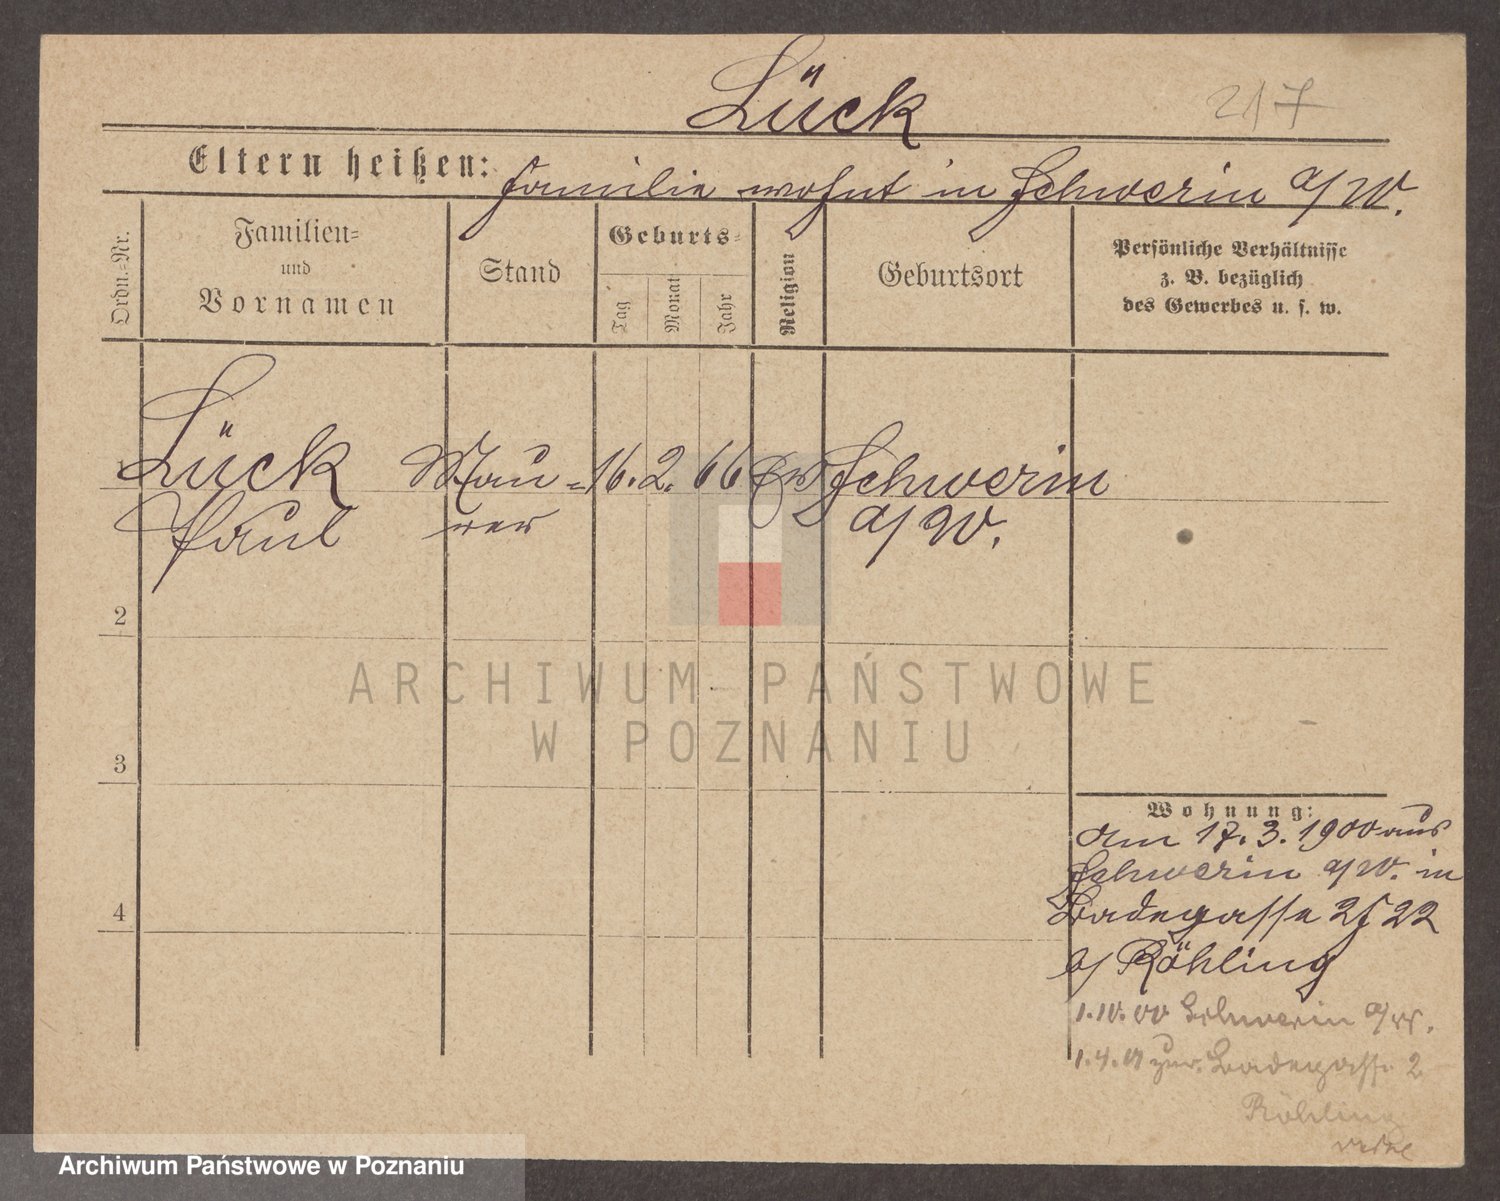 Lück
217
Eltern heißen: Familie wohnt in Schwerin a/W.
Ordn.=Nr.
Familien=
und
Vornamen
Stand
Geburts=
Tag
Monat
Jahr
Religion
Geburtsort
Persönliche Verhältnisse
z. B. bezüglich
des Gewerbes u. s. w.
1
Lück Mau= 16. 2. 66 Ev Schwerin
Paul rer a/W.
2
3
4
Wohnung:
Am 17. 3. 1900 aus
Schwerin a/W. in
Badegasse 2 22
b/ Röhling
1.10.00 Schwerin a/W.
1.4.01 zur. Badegasse 2
Röhling
ARCHIWUM PAŃSTWOWE
W POZNANIU
Archiwum Państwowe w Poznaniu